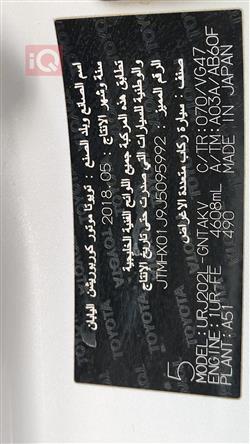 اسم الصانع وبلد الصنع : تويوتا موتور كوربوريشن اليابان
سنة وشهر الإنتاج : 2018.05
تطابق هذه المركبة جميع اللوائح الفنية الخليجية
والوطنية للسيارات التي صدرت حتى تاريخ الإنتاج
الرقم المميز : JTMHX01J9J5095992
صنف : سيارة ركاب متعددة الأغراض
5
MODEL:URJ202L-GNTAKV C/TR:070/VG47
ENGINE:1UR-FE 4608mL A/TM:A03A/AB60F
PLANT:A51 490 MADE IN JAPAN